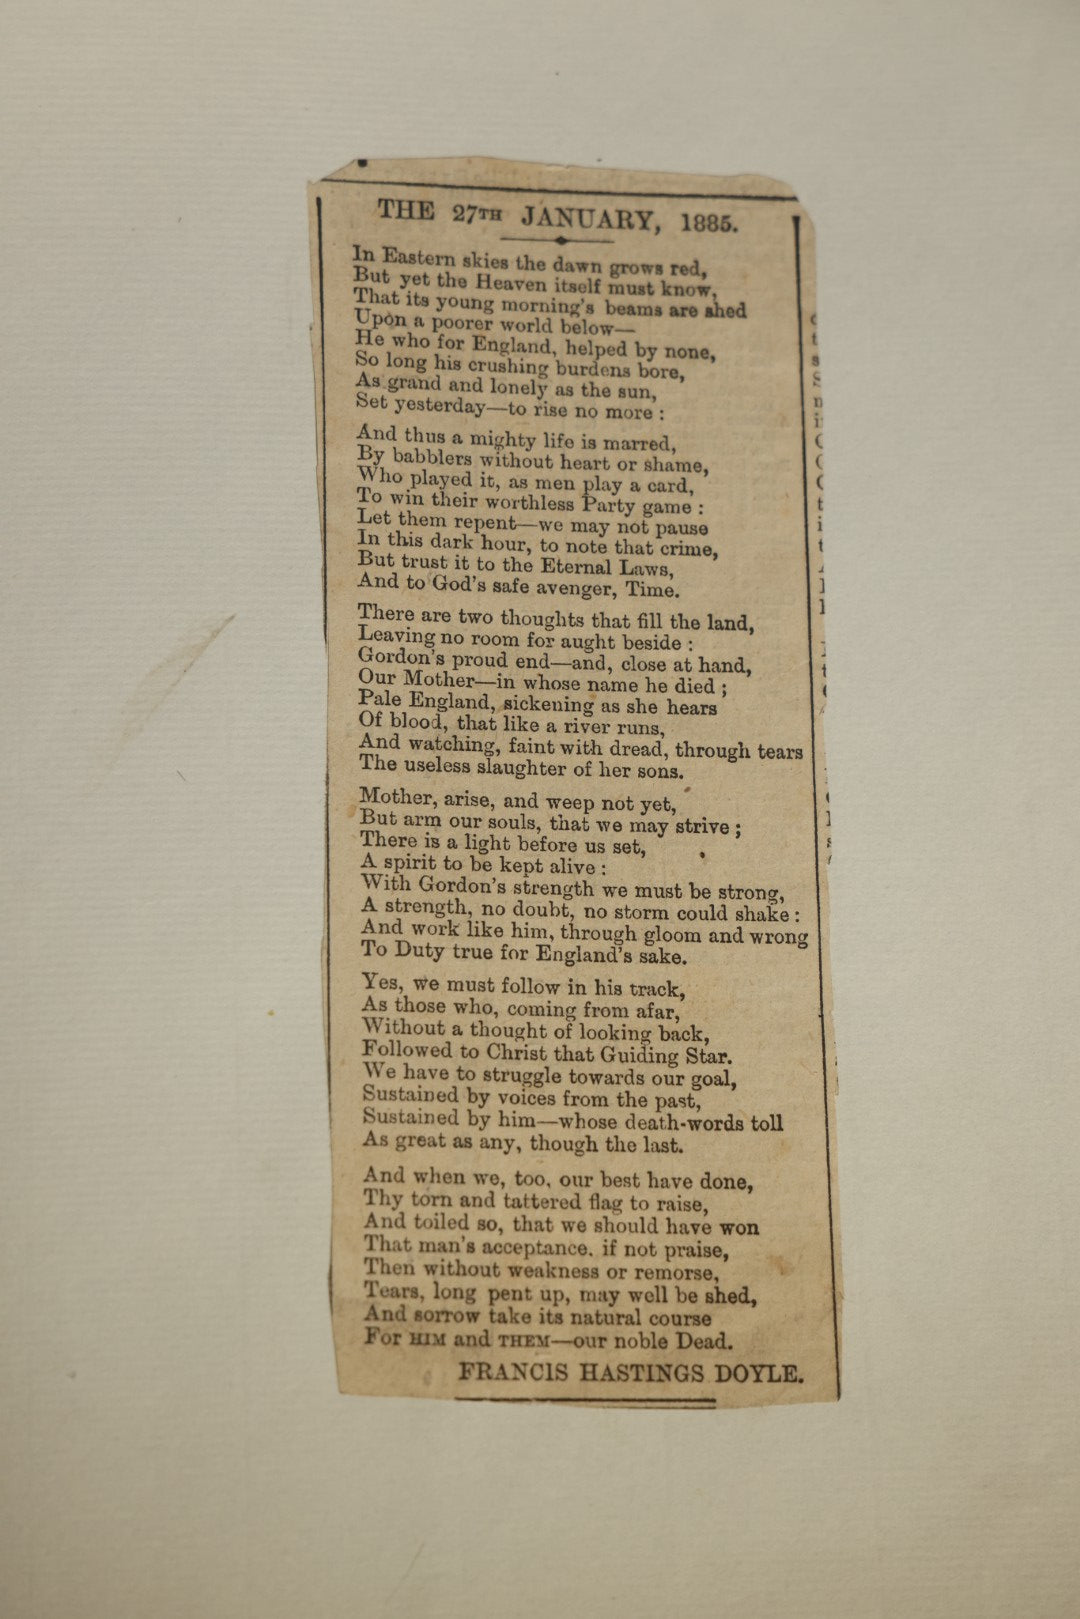 THE 27TH JANUARY, 1885.
In Eastern skies the dawn grows red,
But yet the Heaven itself must know,
That its young morning's beams are shed
Upon a poorer world below—
He who for England, helped by none,
So long his crushing burdens bore,
As grand and lonely as the sun,
Set yesterday—to rise no more :
And thus a mighty life is marred,
By babblers without heart or shame,
Who played it, as men play a card,
To win their worthless Party game :
Let them repent—we may not pause
In this dark hour, to note that crime,
But trust it to the Eternal Laws,
And to God's safe avenger, Time.
There are two thoughts that fill the land,
Leaving no room for aught beside :
Gordon's proud end—and, close at hand,
Our Mother—in whose name he died ;
Pale England, sickening as she hears
Of blood, that like a river runs,
And watching, faint with dread, through tears
The useless slaughter of her sons.
Mother, arise, and weep not yet,
But arm our souls, that we may strive ;
There is a light before us set,
A spirit to be kept alive :
With Gordon's strength we must be strong,
A strength, no doubt, no storm could shake :
And work like him, through gloom and wrong
To Duty true for England's sake.
Yes, we must follow in his track,
As those who, coming from afar,
Without a thought of looking back,
Followed to Christ that Guiding Star.
We have to struggle towards our goal,
Sustained by voices from the past,
Sustained by him—whose death-words toll
As great as any, though the last.
And when we, too, our best have done,
Thy torn and tattered flag to raise,
And toiled so, that we should have won
That man's acceptance. if not praise,
Then without weakness or remorse,
Tears, long pent up, may well be shed,
And sorrow take its natural course
For HIM and THEM—our noble Dead.
FRANCIS HASTINGS DOYLE.